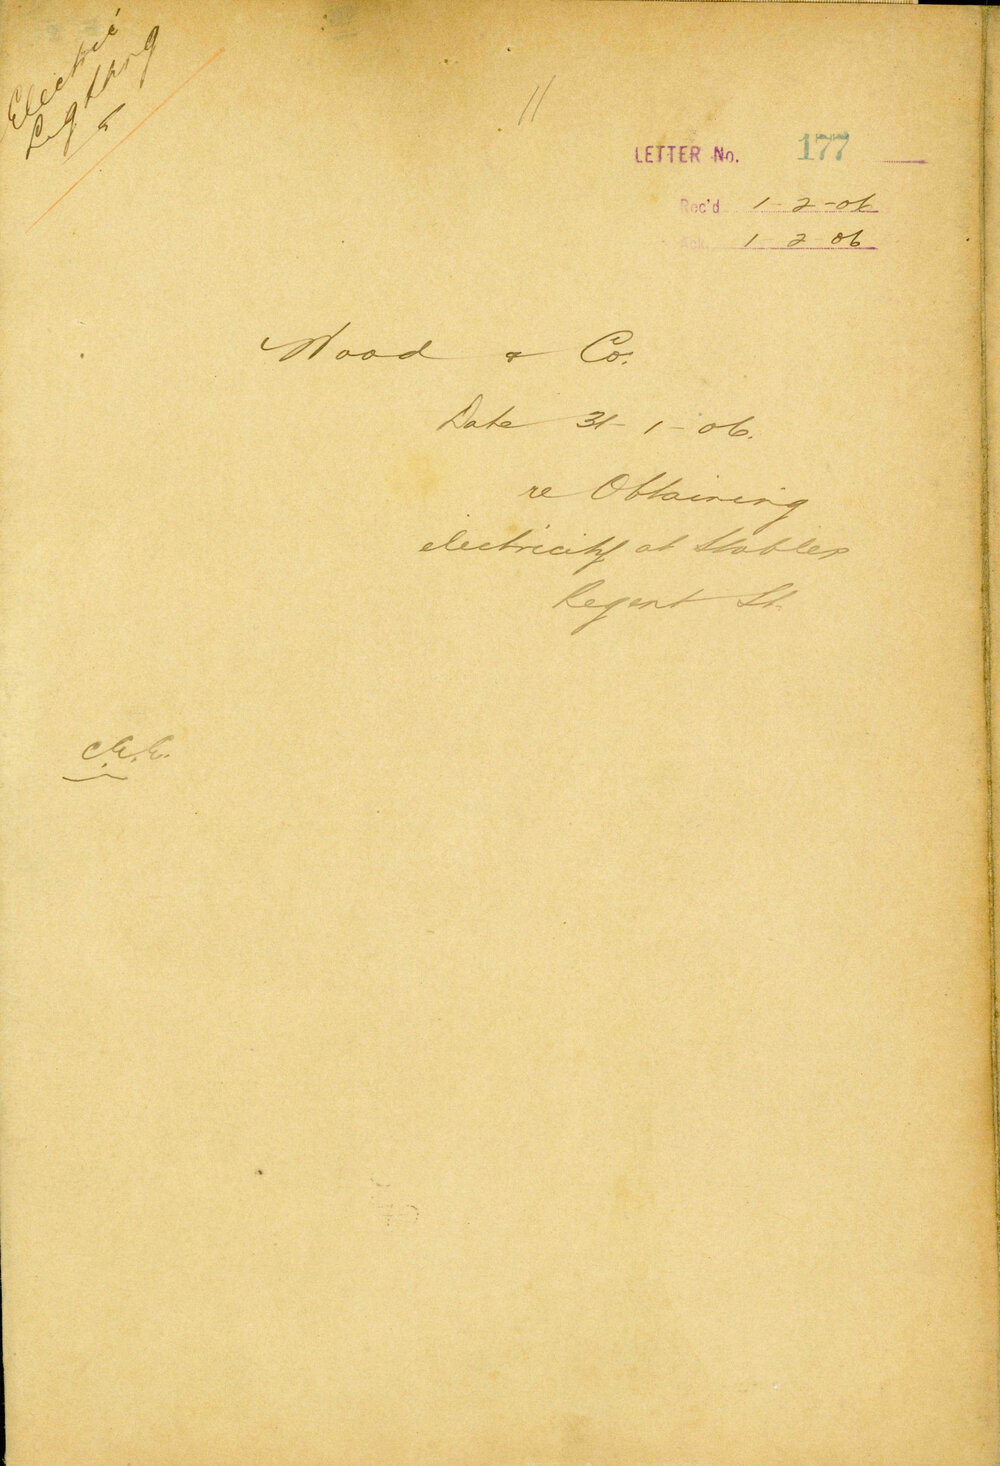 Electric
Lighting
11
LETTER No. 177
Rec'd 1-2-06
Ack 1 2 06
Wood & Co.
Date 31-1-06.
re Obtaining
electricity at Stables
Regent St.